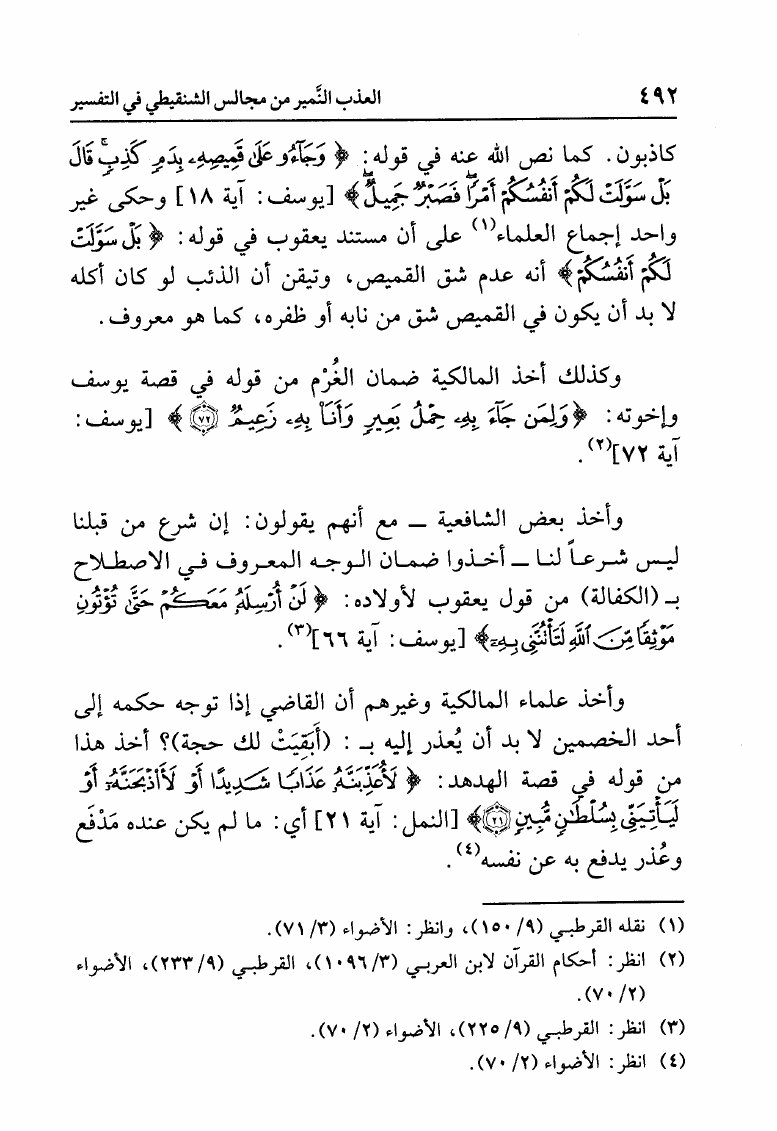 ٤٩٢ العذب النَّمير من مجالس الشنقيطي في التفسير
كاذبون. كما نص الله عنه في قوله: ﴿ وَجَآءُو عَلَىٰ قَمِيصِهِۦ بِدَمٖ كَذِبٖۚ قَالَ
بَلۡ سَوَّلَتۡ لَكُمۡ أَنفُسُكُمۡ أَمۡرٗاۖ فَصَبۡرٞ جَمِيلٞۖ﴾ [يوسف: آية ١٨] وحكى غير
واحد إجماع العلماء(١) على أن مستند يعقوب في قوله: ﴿ بَلۡ سَوَّلَتۡ
لَكُمۡ أَنفُسُكُمۡ﴾ أنه عدم شق القميص، وتيقن أن الذئب لو كان أكله
لا بد أن يكون في القميص شق من نابه أو ظفره، كما هو معروف.
وكذلك أخذ المالكية ضمان الغُرْم من قوله في قصة يوسف
وإخوته: ﴿وَلِمَن جَآءَ بِهِۦ حِمۡلُ بَعِيرٖ وَأَنَا۠ بِهِۦ زَعِيمٞ ٧٢﴾ [يوسف:
آية ٧٢](٢).
وأخذ بعض الشافعية ــ مع أنهم يقولون: إن شرع من قبلنا
ليس شرعاً لنا ــ أخذوا ضمان الوجه المعروف في الاصطلاح
بـ (الكفالة) من قول يعقوب لأولاده: ﴿ لَنۡ أُرۡسِلَهُۥ مَعَكُمۡ حَتَّىٰ تُؤۡتُونِ
مَوۡثِقٗا مِّنَ ٱللَّهِ لَتَأۡتُنَّنِي بِهِۦٓ﴾ [يوسف: آية ٦٦](٣).
وأخذ علماء المالكية وغيرهم أن القاضي إذا توجه حكمه إلى
أحد الخصمين لا بد أن يُعذر إليه بـ : (أَبَقِيَتْ لك حجة)؟ أخذ هذا
من قوله في قصة الهدهد: ﴿ لَأُعَذِّبَنَّهُۥ عَذَابٗا شَدِيدًا أَوۡ لَأَاْذۡبَحَنَّهُۥٓ أَوۡ
لَيَأۡتِيَنِّي بِسُلۡطَٰنٖ مُّبِينٖ ٢١﴾ [النمل: آية ٢١] أي: ما لم يكن عنده مَدْفَع
وعُذر يدفع به عن نفسه(٤).
(١) نقله القرطبي (٩/ ١٥٠)، وانظر: الأضواء (٣/ ٧١).
(٢) انظر: أحكام القرآن لابن العربي (٣/ ١٠٩٦)، القرطبي (٩/ ٢٣٣)، الأضواء
(٢/ ٧٠).
(٣) انظر: القرطبي (٩/ ٢٢٥)، الأضواء (٢/ ٧٠).
(٤) انظر: الأضواء (٢/ ٧٠).